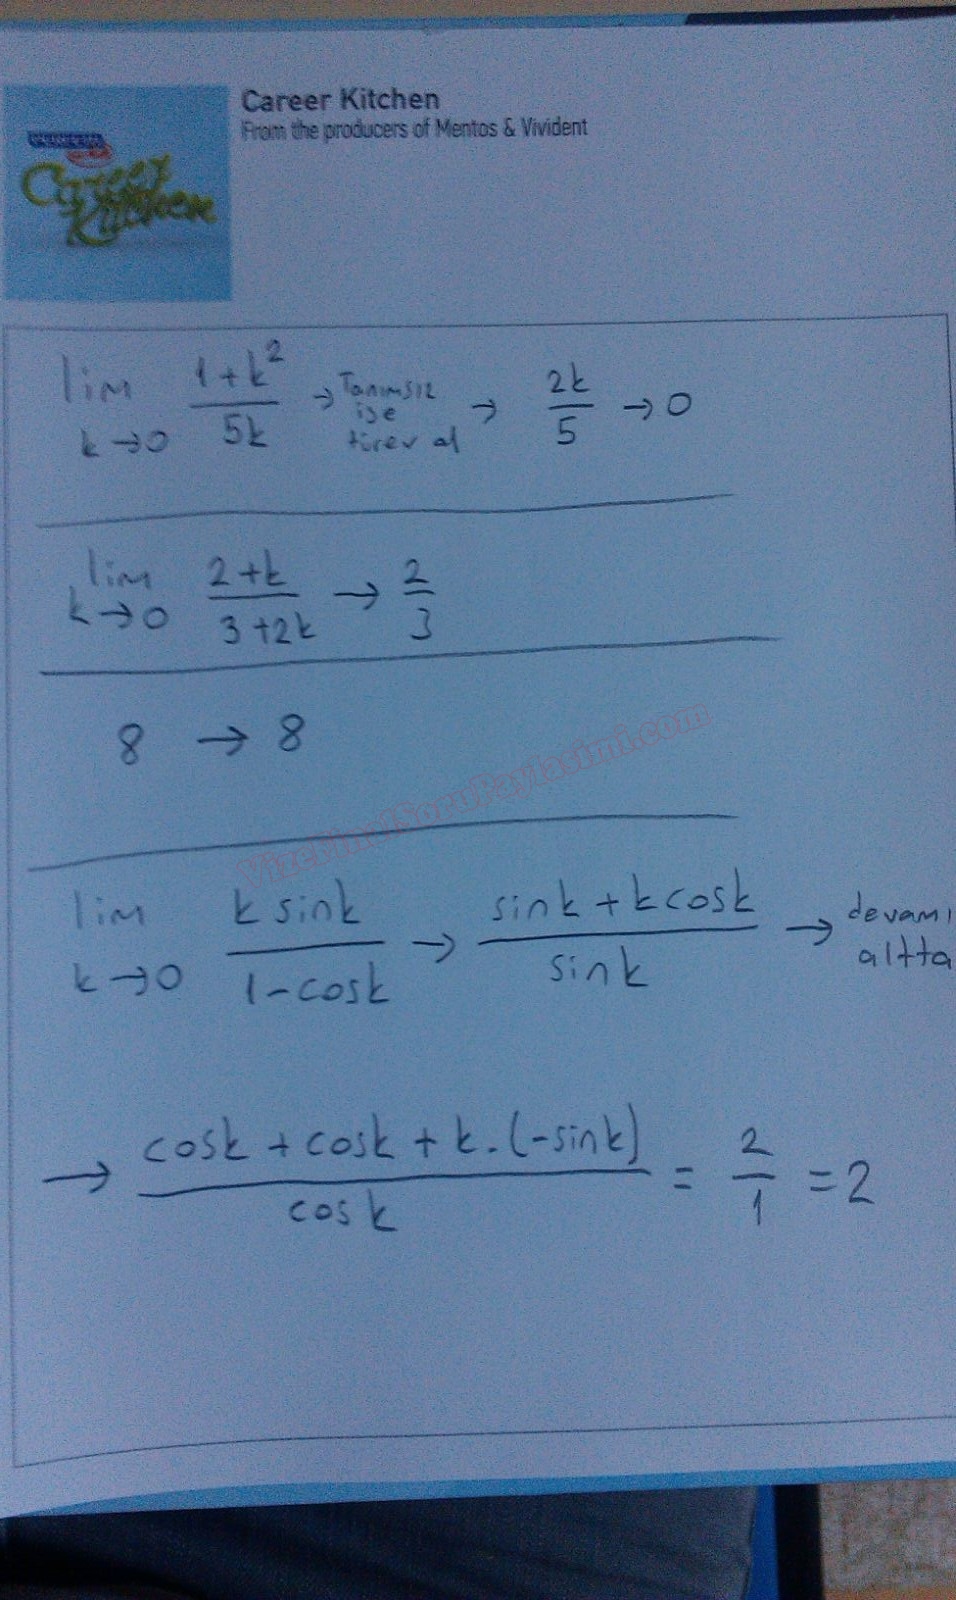 Career Kitchen
From the producers of Mentos & Vivident
Career
Kitchen
lim k→0 (1+k²)/(5k) → Tanımsız ise türev al → 2k/5 → 0
lim k→0 (2+k)/(3+2k) → 2/3
8 → 8
VizeFinalSoruPaylasimi.com
lim k→0 (k sink)/(1-cosk) → (sink + k cosk)/(sink) → devamı altta
→ (cosk + cosk + k.(-sink))/(cosk) = 2/1 = 2